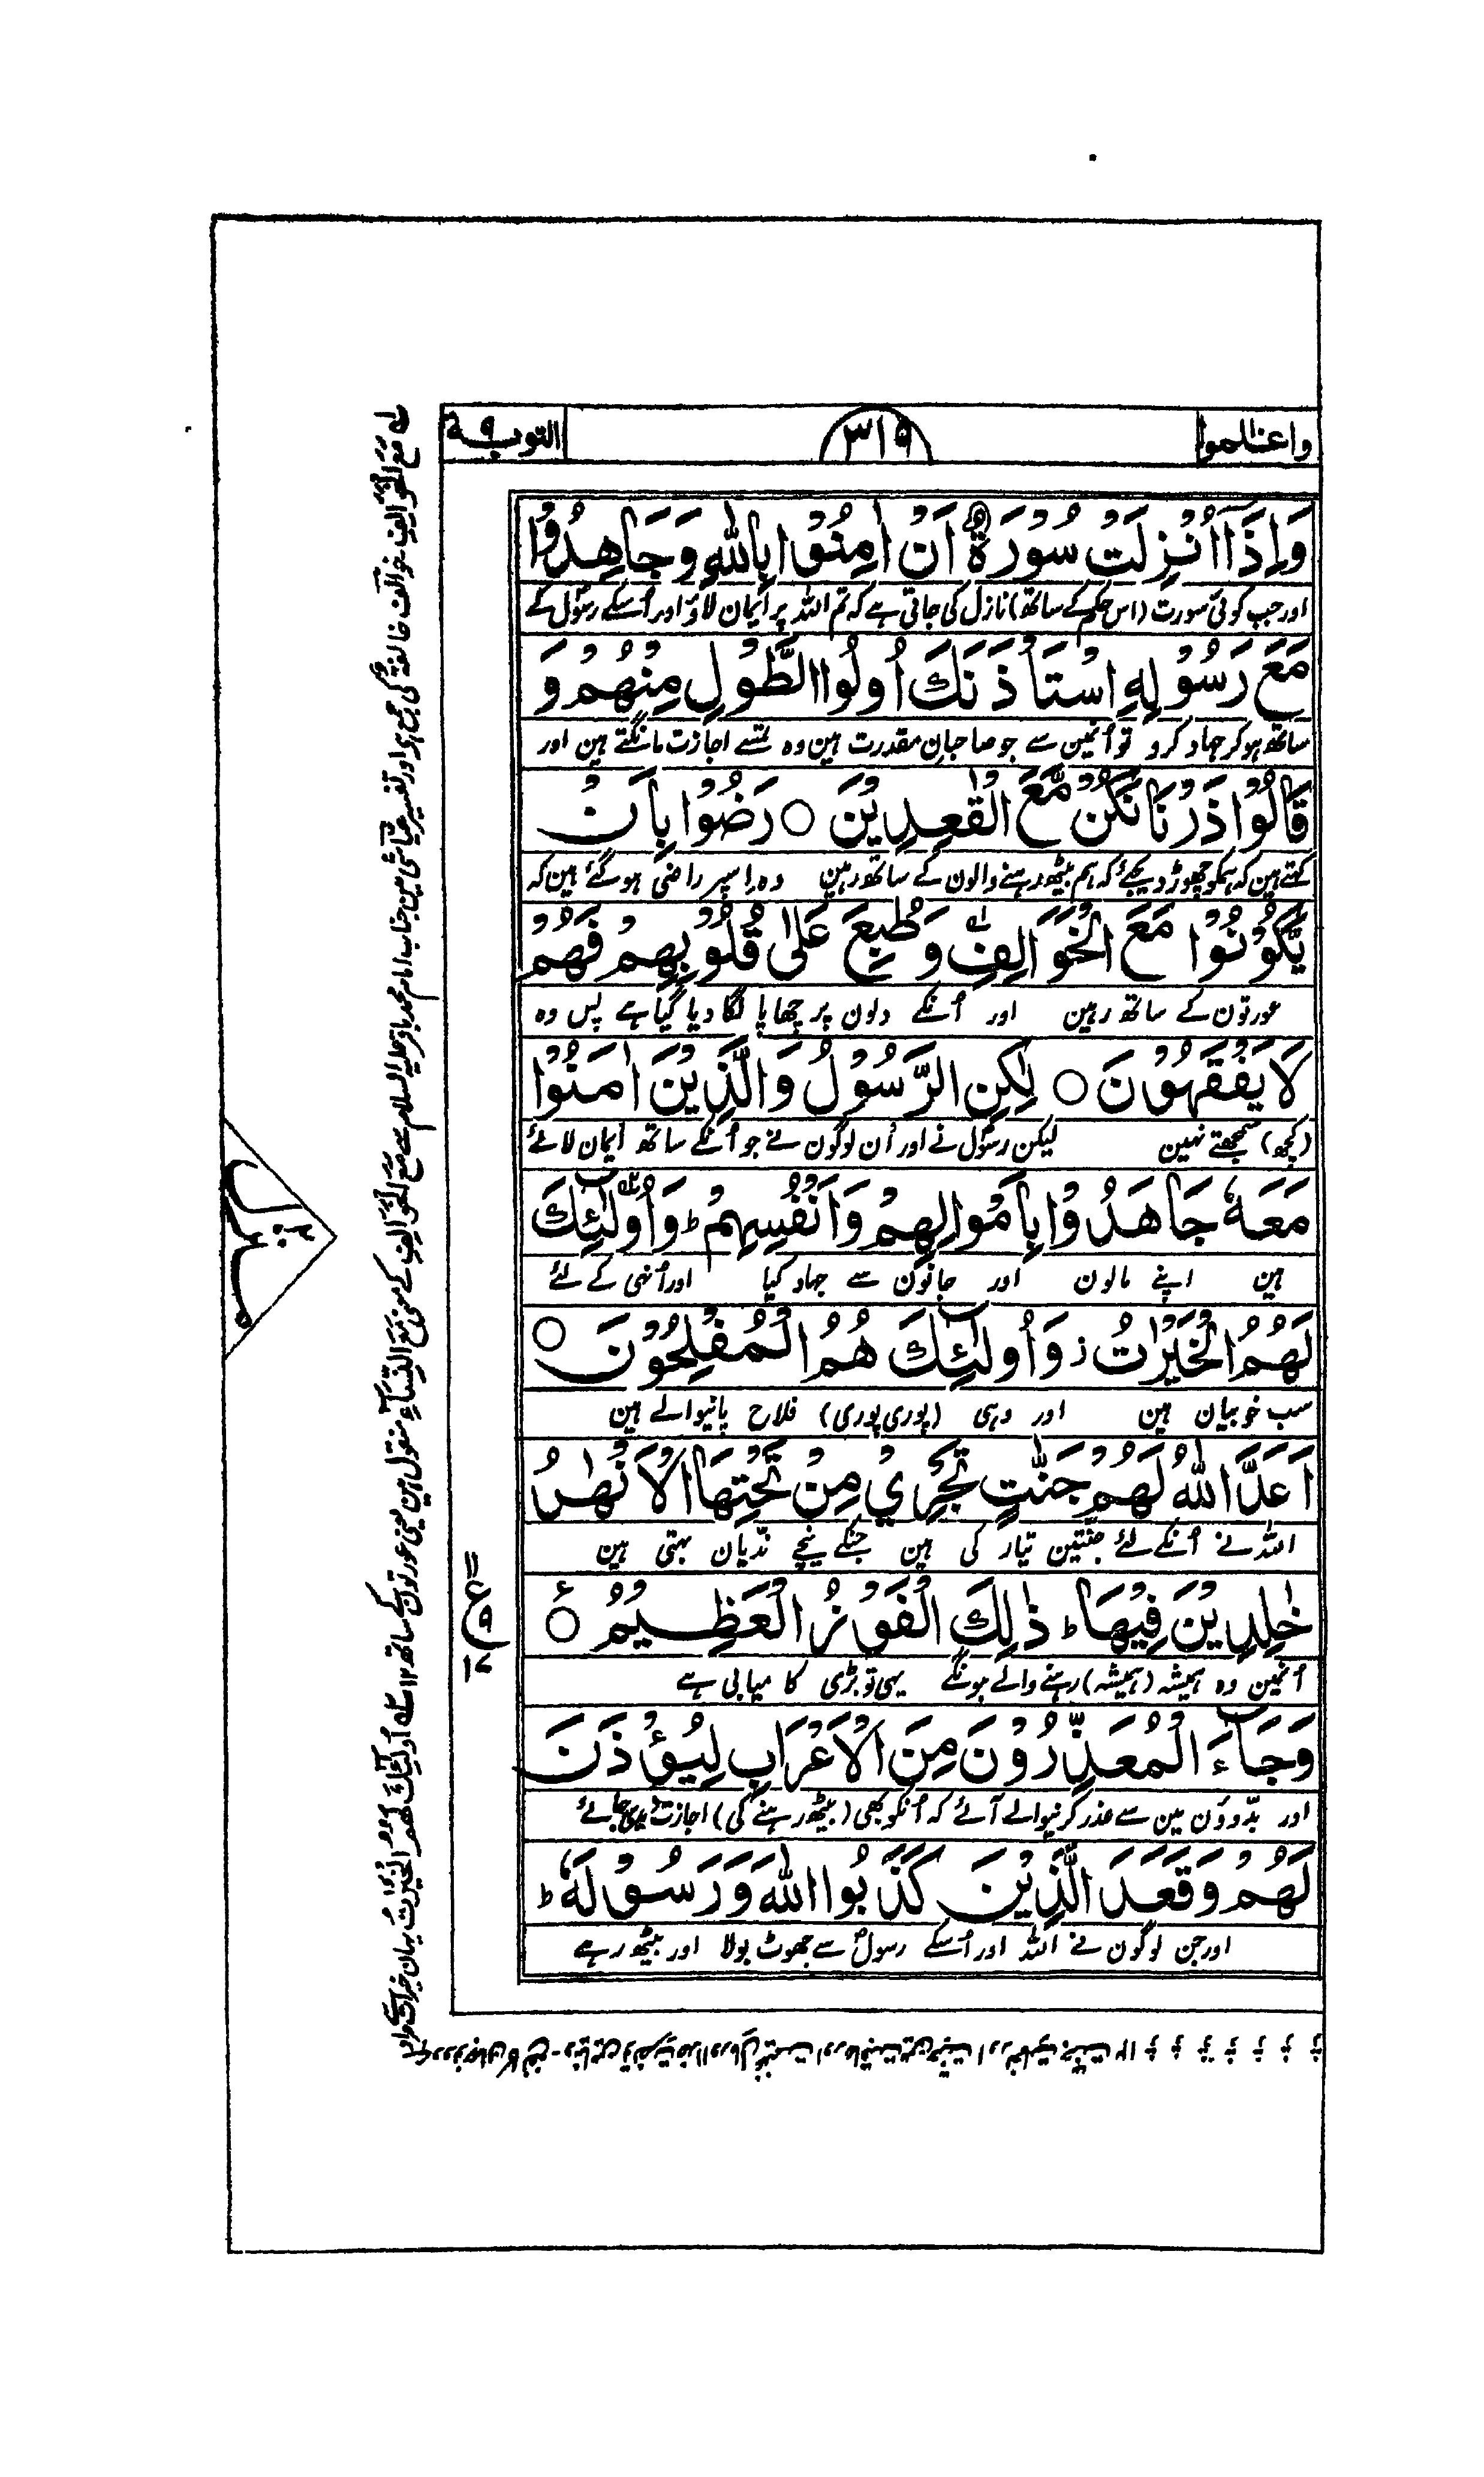 واعلموا
٣١٩
التوبة ٩
وَاِذَاۤ اُنْزِلَتْ سُوْرَةٌ اَنْ اٰمِنُوْا بِاللّٰهِ وَجَاهِدُوْا
اور جب کوئی سورت (اس حکم کے ساتھ) نازل کی جاتی ہے کہ تم اللہ پر ایمان لاؤ اور اُسکے رسول کے
مَعَ رَسُوْلِهِ اسْتَاْذَنَكَ اُولُوا الطَّوْلِ مِنْهُمْ وَ
ساتھ ہو کر جہاد کرو تو اُنمین سے جو صاحبانِ مقدرت ہین وہ تمسے اجازت مانگتے ہین اور
قَالُوْا ذَرْنَا نَكُنْ مَّعَ الْقٰعِدِيْنَ ○ رَضُوْا بِاَنْ
کہتے ہین کہ ہمکو چھوڑ دیجئے کہ ہم بیٹھ رہنے والون کے ساتھ رہین وہ اسپر راضی ہو گئے ہین کہ
يَّكُوْنُوْا مَعَ الْخَوَالِفِ وَطُبِعَ عَلٰى قُلُوْبِهِمْ فَهُمْ
عورتون کے ساتھ رہین اور اُنکے دلون پر چھاپا لگا دیا گیا ہے پس وہ
لَا يَفْقَهُوْنَ ○ لٰكِنِ الرَّسُوْلُ وَالَّذِيْنَ اٰمَنُوْا
(کچھ) سمجھتے نہین لیکن رسول نے اور اُن لوگون نے جو اُنکے ساتھ ایمان لائے
مَعَهٗ جَاهَدُوْا بِاَمْوَالِهِمْ وَاَنْفُسِهِمْ ؕ وَاُولٰٓئِكَ
ہین اپنے مالون اور جانون سے جہاد کیا اور اُنہی کے لئے
لَهُمُ الْخَيْرٰتُ ز وَاُولٰٓئِكَ هُمُ الْمُفْلِحُوْنَ ○
سب خوبیان ہین اور وہی (پوری پوری) فلاح پانیوالے ہین
اَعَدَّ اللّٰهُ لَهُمْ جَنّٰتٍ تَجْرِيْ مِنْ تَحْتِهَا الْاَنْهٰرُ
اللہ نے اُنکے لئے جنتین تیار کی ہین جنکے نیچے ندّیان بہتی ہین
خٰلِدِيْنَ فِيْهَا ؕ ذٰلِكَ الْفَوْزُ الْعَظِيْمُ ○ ع
اُنمین وہ ہمیشہ (ہمیشہ) رہنے والے ہونگے یہی تو بڑی کامیابی ہے
وَجَآءَ الْمُعَذِّرُوْنَ مِنَ الْاَعْرَابِ لِيُؤْذَنَ
اور بدّوون مین سے عذر کرنیوالے آئے کہ اُنکو بھی (بیٹھ رہنے کی) اجازت دیجائے
لَهُمْ وَقَعَدَ الَّذِيْنَ كَذَبُوا اللّٰهَ وَرَسُوْلَهٗ ؕ
اور جن لوگون نے اللہ اور اُسکے رسول سے جھوٹ بولا اور بیٹھ رہے
مَعَ الْخَوَالِفِ خوالف خالفۃ کی جمع ہے اور تفسیر عیاشی مین جناب امام محمد باقر علیہ السلام سے مَعَ الْخَوَالِفِ کے معنی مَعَ النِّسَآءِ منقول ہین یعنی عورتون کے ساتھ ١٢ اُولٰٓئِكَ لَهُمُ الْخَيْرٰتُ یہان خیرات سے مراد
منزل ٢